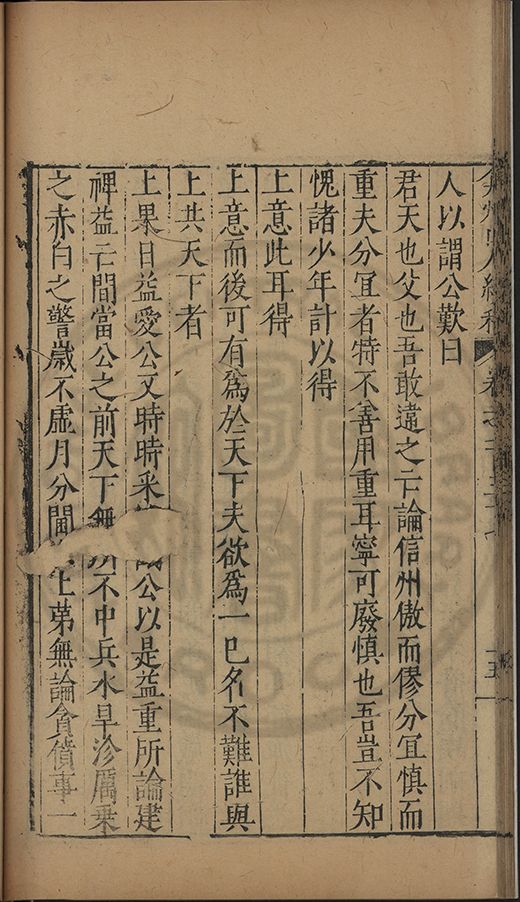 弇州山人續稿 卷之一百三十
人以謂公歎曰
君天也父也吾敢違之亡論信州傲而僇分宜慎而
重夫分宜者特不善用重耳寧可廢慎也吾豈不知
愧諸少年計以得
上意此耳得
上意而後可有為於天下夫欲為一已名不難誰與
上共天下者
上果日益愛公文時時采公以是益重所論建
裨益亡間當公之前天下無所不中兵水旱沴厲乗
之赤白之警歲不虛月分閫上第無論貪債事一